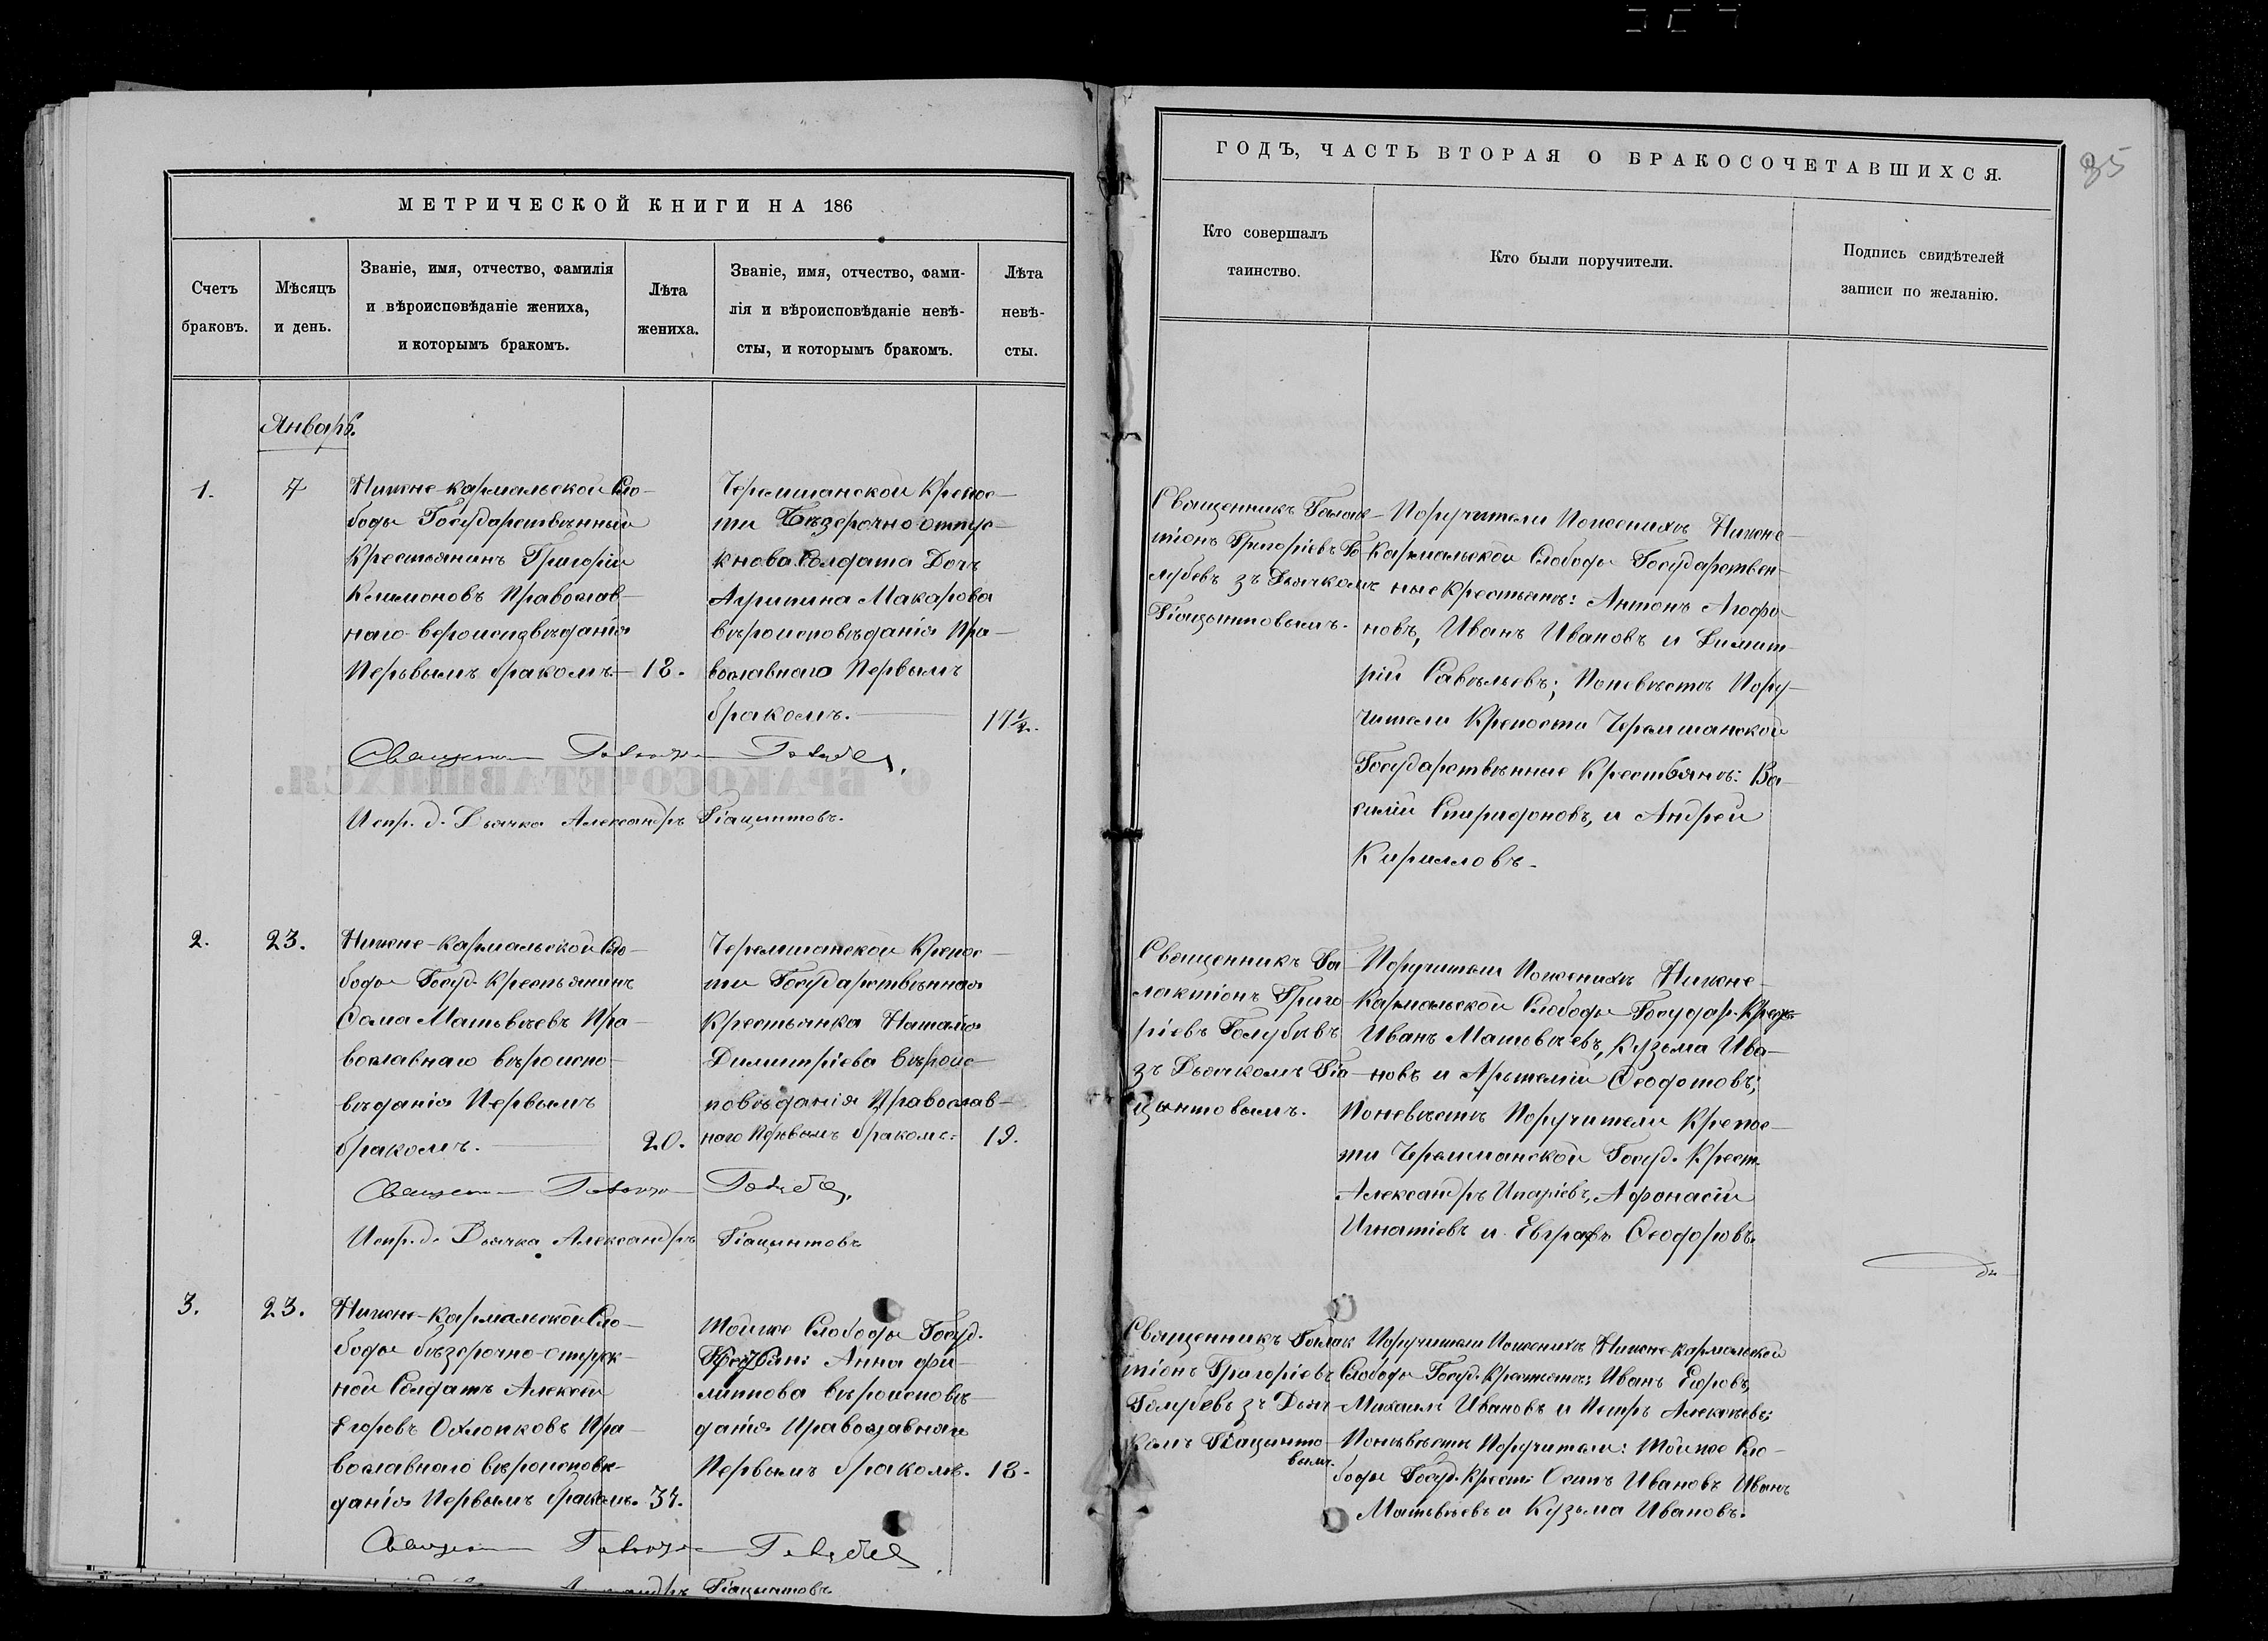 МЕТРИЧЕСКОЙ КНИГИ НА 186
Счетъ
браковъ.
Мѣсяцъ
и день.
Званіе, имя, отчество, фамилія
и вѣроисповѣданіе жениха,
и которымъ бракомъ.
Лѣта
жениха.
Званіе, имя, отчество, фами-
лія и вѣроисповѣданіе невѣ-
сты, и которымъ бракомъ.
Лѣта
невѣ-
сты.
Январь.
1.
7
Нижне-кармальской Сло-
боды Государственный
Крестьянинъ Григорій
Климоновъ Православ-
наго вероисповѣданія
Первымъ бракомъ.-
18.
Черемшанской Крепос-
ти Безсрочно отпус-
кнова Солдата Дочь
Агрипина Макарова
вѣроисповѣданія Пра-
вославнаго Первымъ
бракомъ.
17 1/2.
Священ Голубев.
Испр. д. Дьячка Александръ Гіацинтовъ.
2.
23.
Нижне-кармальской Сло-
боды Госуд. Крестьянинъ
Ѳома Матвѣевъ Пра-
вославнаго вѣроиспо-
вѣданія Первымъ
бракомъ.
20.
Черемшанской Крепос-
ти Государственная
Крестьянка Наталія
Димитріева вѣроис-
повѣданія Православ-
наго Первымъ бракомъ.
19.
Священ Голубев.
Испр. д. Дьячка Александръ Гіацинтовъ
3.
23.
Нижне-кармальской Сло-
боды безсрочно-отпуск-
ной Солдатъ Алексѣй
Егоровъ Охлопковъ Пра-
вославнаго вѣроисповѣ-
данія Первымъ бракомъ.
37.
Тойже Слободы Госуд.
Анна Фи-
липпова вѣроисповѣ-
данія Православнаго
Первымъ бракомъ.
18.
Священ Голубев
Гіацинтовъ
ГОДЪ, ЧАСТЬ ВТОРАЯ О БРАКОСОЧЕТАВШИХСЯ.
35
Кто совершалъ
таинство.
Кто были поручители.
Подпись свидѣтелей
записи по желанію.
Священникъ Галак-
тіонъ Григоріевъ Го-
лубевъ зъ Дьячкомъ
Гіацынтовымъ.
Поручители Поженихѣ Нижне-
Кармальской Слободы Государствен-
ные Крестьянѣ: Антонъ Агафо-
новъ, Иванъ Ивановъ и Димит-
рій Савельевъ; Поневѣстѣ Пору-
чители Крепости Черемшанской
Государственные Крестьянѣ: Ва-
силій Спиридоновъ, и Андрей
Кирилловъ.
Священникъ Га-
лактіонъ Григо-
ріевъ Голубевъ
зъ Дьячкомъ Гіа-
цынтовымъ.
Поручители Поженихѣ Нижне-
Кармальской Слободы Государ. Крест.
Иванъ Матвѣевъ, Кузьма Ива-
новъ и Артемій Ѳеодотовъ;
Поневѣстѣ Поручители Крепос-
ти Черемшанской Госуд. Крест.
Александръ Афонасій
Игнатіевъ и Евграфъ Ѳеодоровъ.
Священникъ Галак
тіонъ Григоріевъ
Голубевъ зъ Дьяч-
комъ Гіацинто-
вымъ.
Поручители Поженихѣ Нижне-кармальской
Слободы Госуд. Крестьянѣ: Иванъ Егоровъ,
Михаилъ Ивановъ и Петръ Алексѣевъ;
Поневѣстѣ Поручители: Тойже Сло-
боды Госуд. Крест: Осипъ Ивановъ Иванъ
Матвѣевъ и Кузьма Ивановъ.